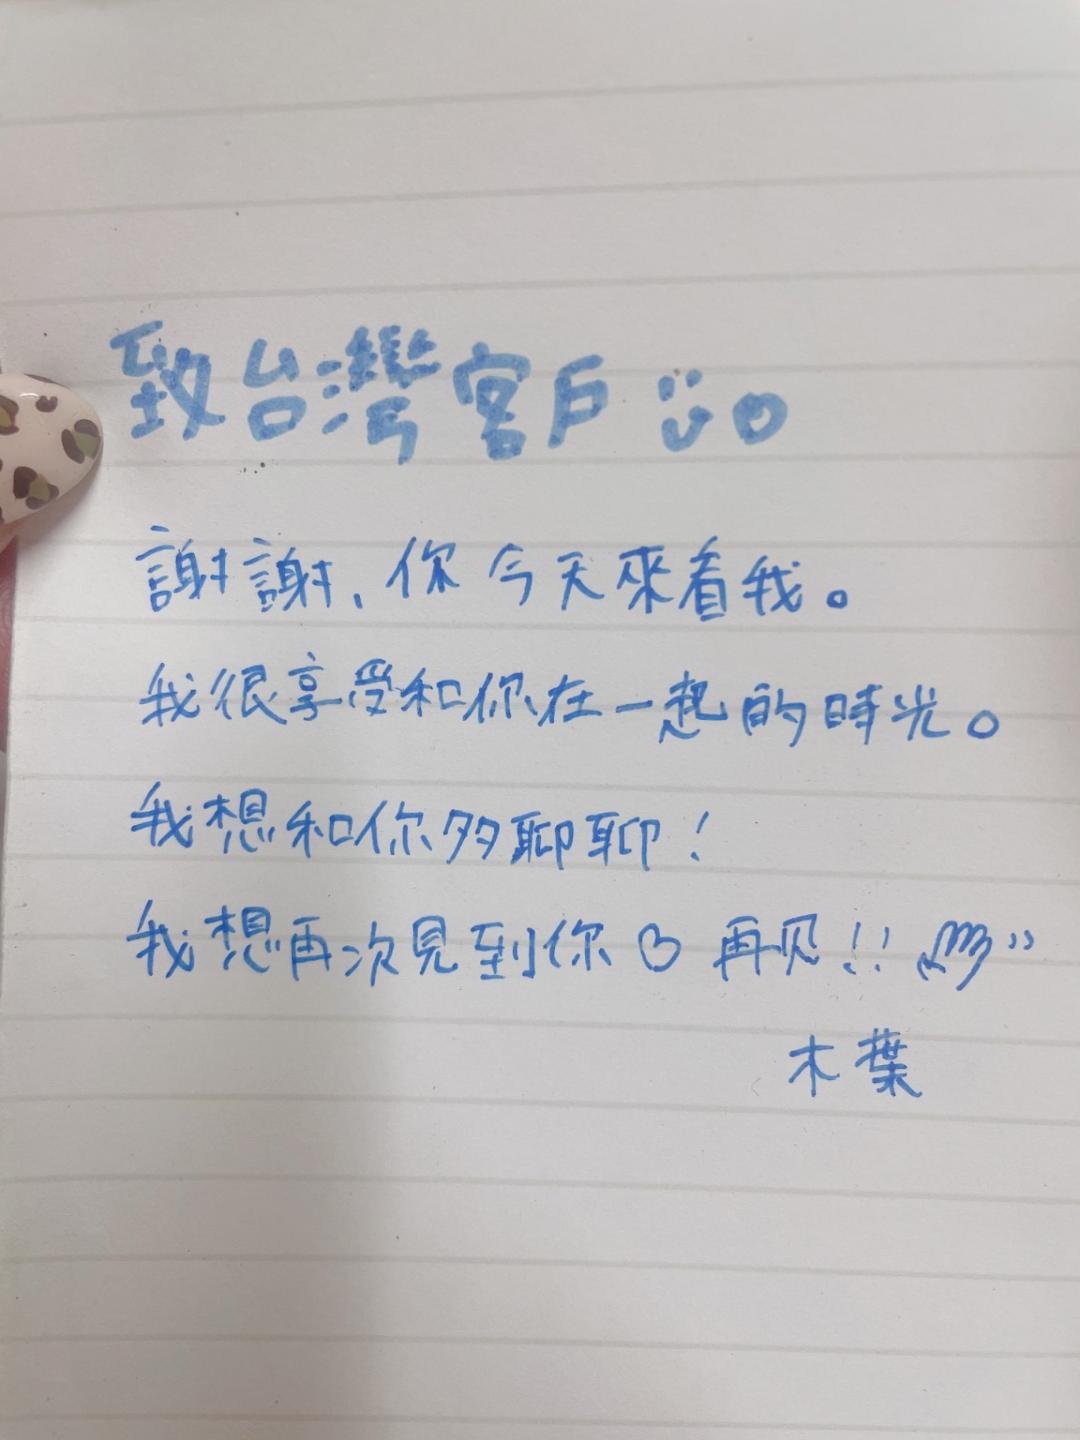 致台灣客戶
謝謝、你今天來看我。
我很享受和你在一起的時光。
我想和你多聊聊！
我想再次見到你♡ 再见!!
木葉